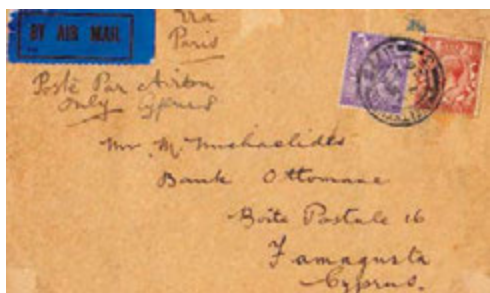 BY AIR MAIL
Via
Paris
Poste Par Avion
only Cyprus
Mr M. Michaelides
Bank Ottomane
Boite Postale 16
Famagusta
Cyprus.